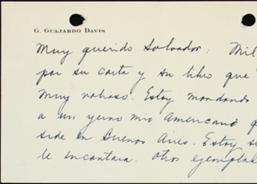 G. GUAJARDO DAVIS
Muy querido Salvador: Mil
por su carta y su libro que
muy valioso. Estoy mandando
a un yerno mio Americano q
side en Buenos Aires. Estoy se
le encantara. Otros ejemplal